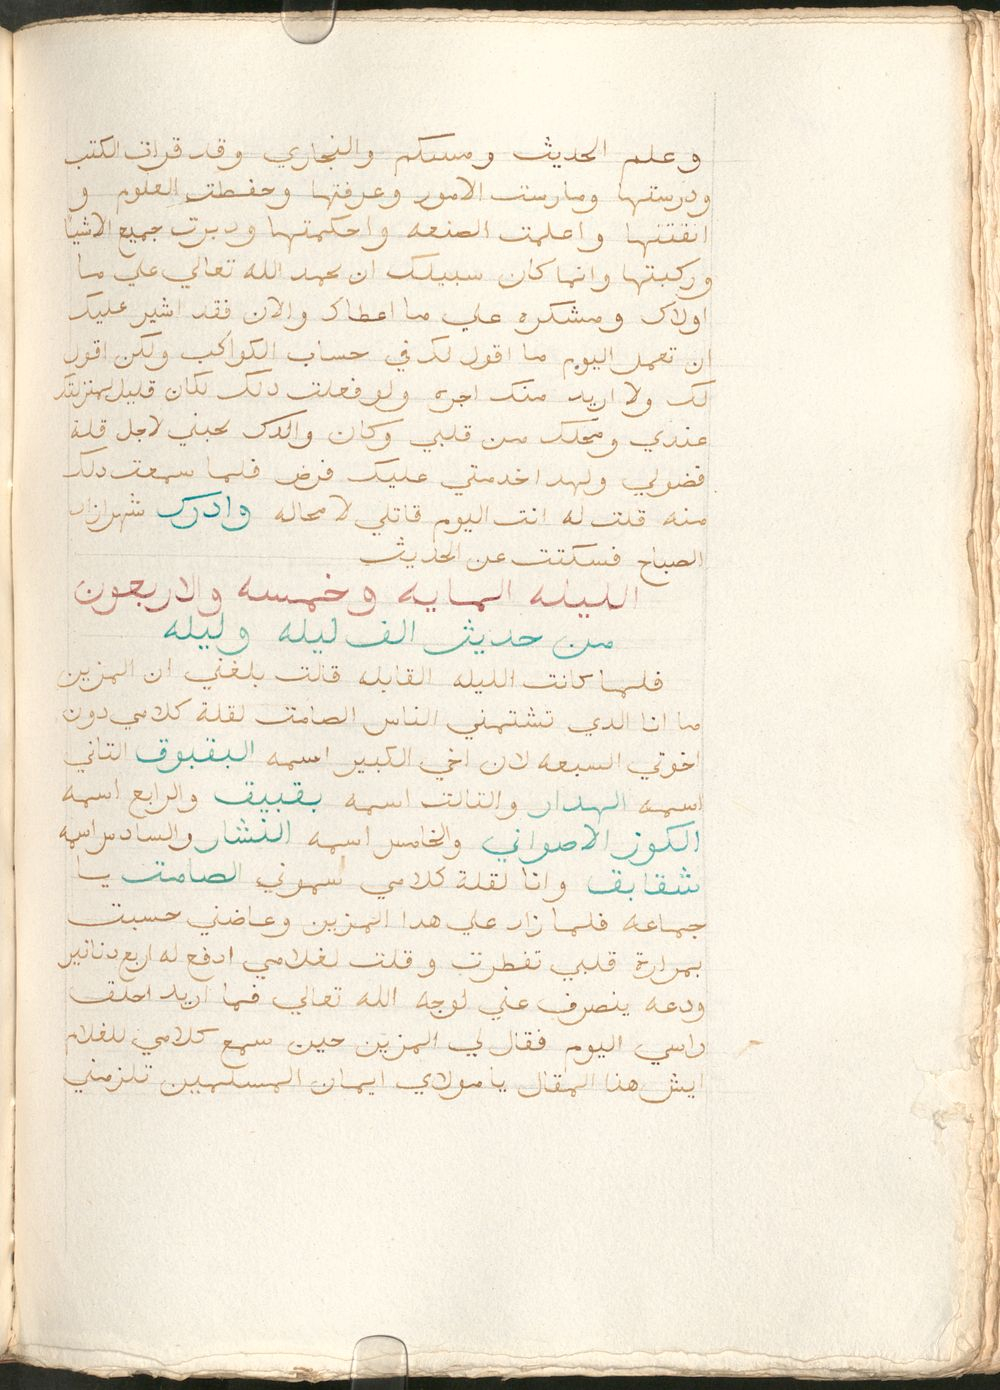 وعلم الحديث ومسلم والنجاري وقد قرات الكتب
ودرستها ومارست الامور وعرفتها وحفطت العلوم و
اتقنتها واعلمت الصنعه واحكمتها ودبرت جميع الاشيا
وركبتها وانما كان سبيلك ان تحمد الله تعالي علي ما
اولاك ومشكره علي ما اعطاك والان فقد اشير عليك
ان تعمل اليوم ما اقول لك في حساب الكواكب ولكن اقول
لك ولا اريد منك اجره ولو فعلت دلك لكان قليل بمنزلتك
عندي ومحلك من قلبي وكان والدك يحبني لاجل قلة
فضولي ولهدا خدمتي عليك فرض فلما سمعت دلك
منه قلت له انت اليوم قاتلي لا محاله وادرك شهرازاد
الصباح فسكتت عن الحديث
الليله المايه وخمسه والاربعون
من حديث الف ليله وليله
فلما كانت الليله القابله قالت بلغني ان المزين
ما انا الدي تشتمني الناس الصامت لقلة كلامي دون
اخوتي السبعه لان اخي الكبير اسمه البقبوق التاني
اسمه الهدار والتالت اسمه بقبيق والرابع اسمه
الكوز الاصواني والخامس اسمه النشار والسادس اسمه
شقابق وانا لقلة كلامي سموني الصامت يا
جماعه فلما زاد علي هدا المزين وعاضني حسبت
بمرارة قلبي تفطرت وقلت لغلامي ادفع له اربع دنانير
ودعه ينصرف عني لوجه الله تعالي فما اريد احلق
راسي اليوم فقال لي المزين حين سمع كلامي للغلام
ايش هذا المقال يا مولاي ايمان المسلمين تلزمني